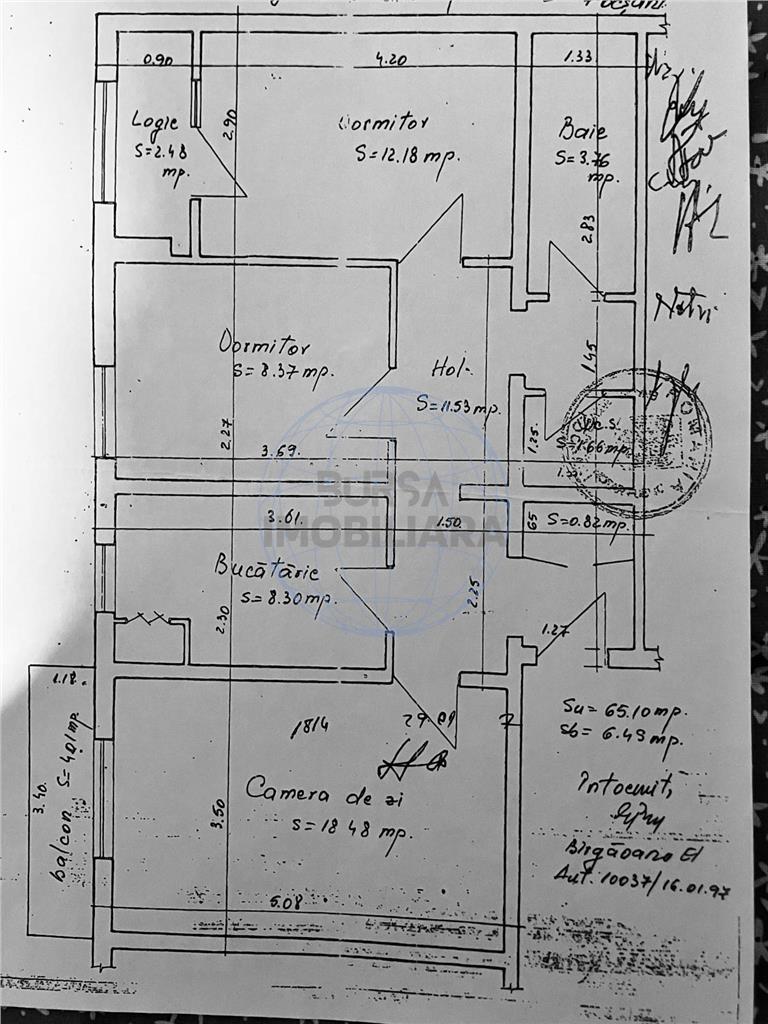 0.90
4.20
1.33
Logie
S=2.48
mp.
2.90
Dormitor
S=12.18 mp.
Baie
S=3.76
mp.
2.83
Dormitor
S=8.37 mp.
Hol
S=11.53 mp.
1.45
2.27
3.69.
1.25
1.66 mp.
ROMANIA
BURSA
IMOBILIARA
3.61.
1.50
65
S=0.82 mp.
Bucătărie
S=8.30 mp.
2.30
2.25
1.27
1.18.
Su=65.10 mp.
Sb=6.49 mp.
1814
3.40.
balcon S=4.01 mp.
Camera de zi
S=18 48 mp.
3.50
Întocmit,
Aut. 10037/16.01.97
5.08